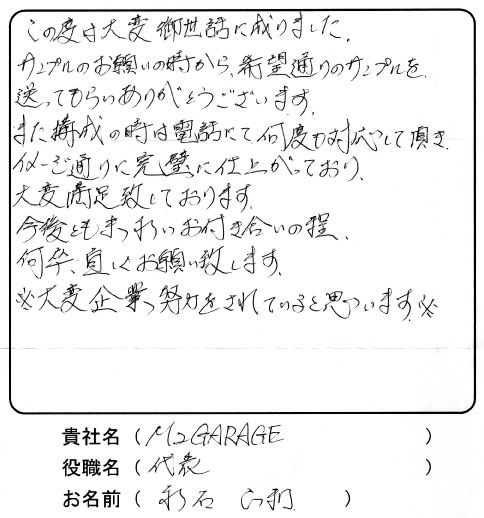 この度は大変御世話に成りました。
サンプルのお願いの時から、希望通りのサンプルを
送ってもらいありがとうございます。
また構成の時は電話にて何度も対応して頂き
イメージ通りに完璧に仕上がっており、
大変満足致しております。
今後とも末永いお付き合いの程、
何卒、宜しくお願い致します。
※大変企業努力をされていると思っています※
貴社名(M2GARAGE)
役職名(代表)
お名前()